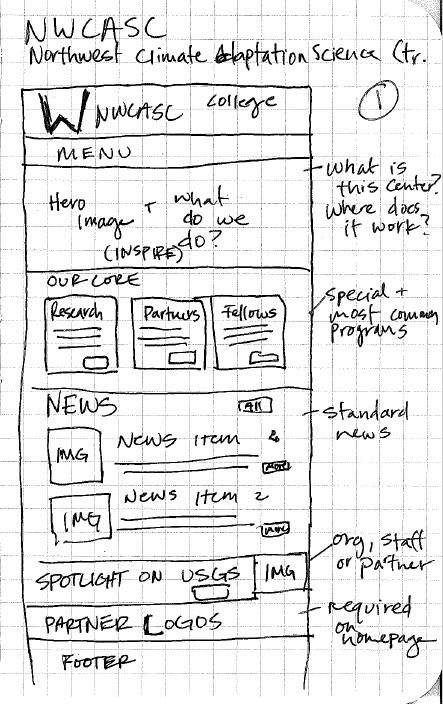 NWCASC
Northwest Climate Adaptation Science Ctr.
1
W NWCASC college
MENU
Hero Image + what do we do?
(INSPIRE)
What is this center?
Where does it work?
OUR CORE
Research
Partners
Fellows
special + most common programs
NEWS
All
standard news
IMG
News Item 2
More
IMG
News Item 2
More
SPOTLIGHT ON USGS
IMG
org, staff or partner
PARTNER LOGOS
required on homepage
FOOTER